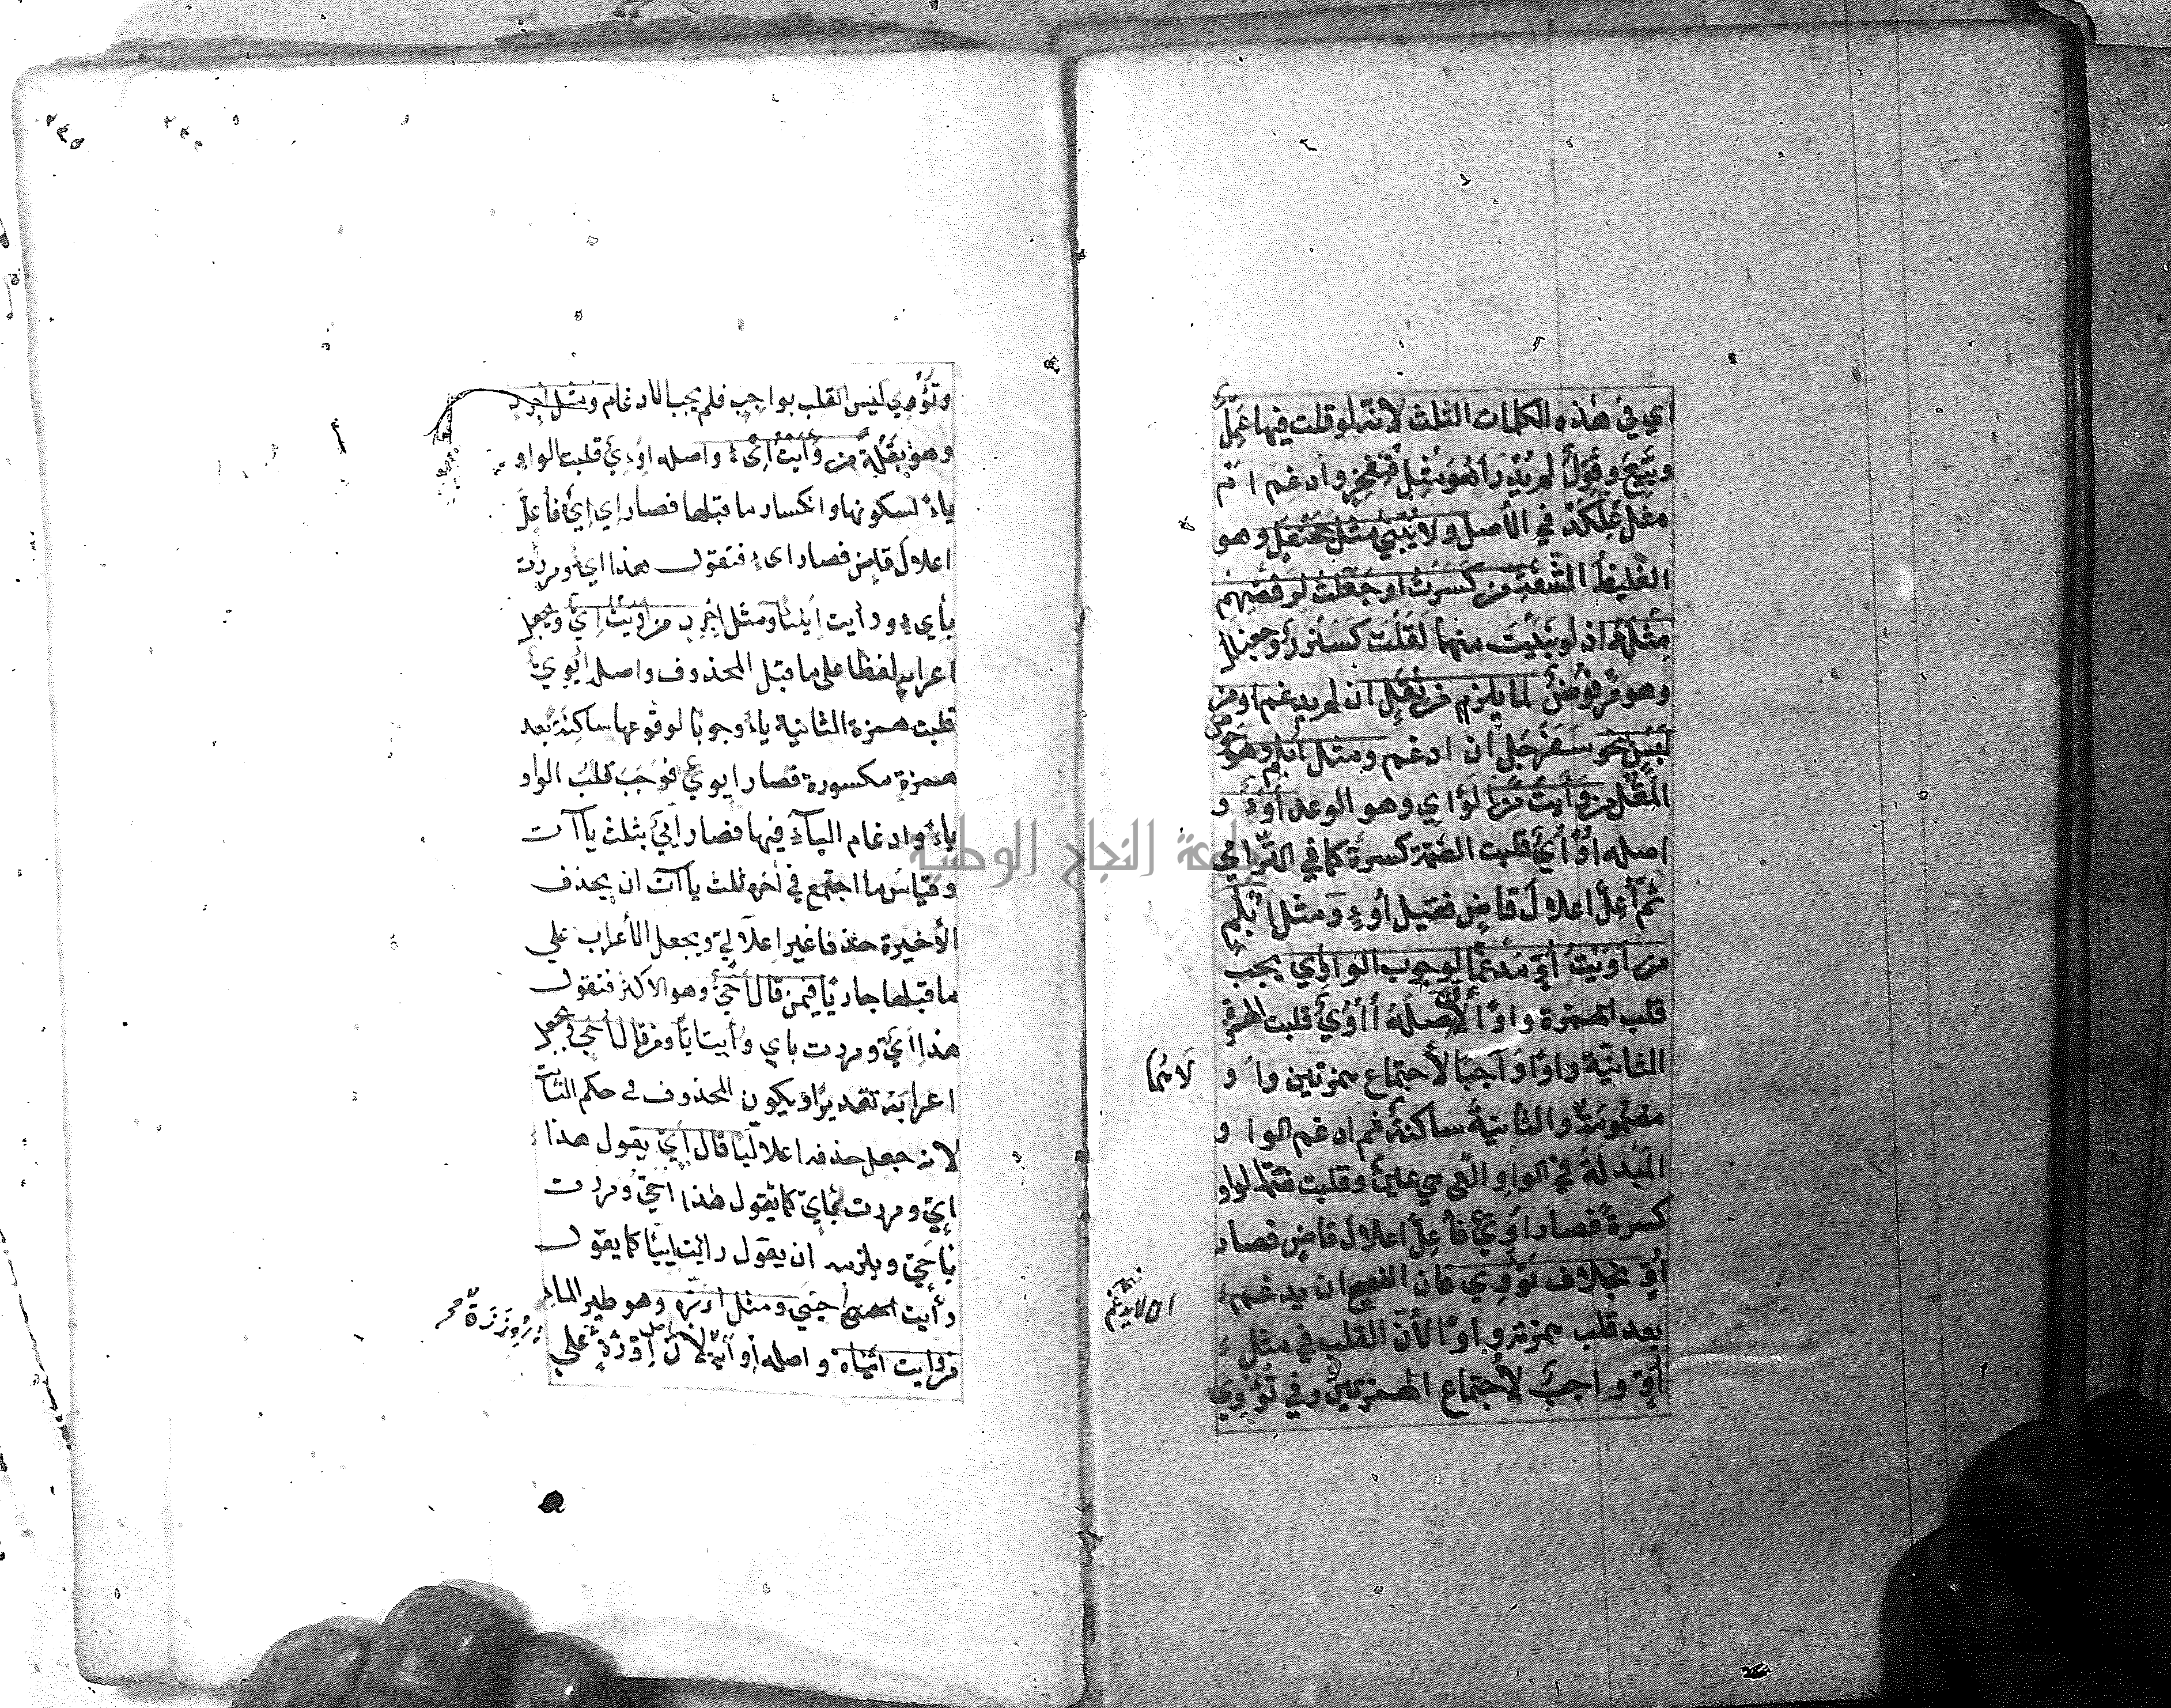 اي في هذه الكلمات الثلث لانه لو قلت فيها عَمِلَ
وبيع وقول لم يدر أهو مثل قنفخر وادغم ام
مثل علكد في الأصل ولا يبنى مثل جحنفل وهو
الغليظ الشفة من كسرت او جعلت لرفضهم
مثله اذ لو بنيت منها لقلت كسنرر وجعنلل
وهو مرفوض لما يلزم من ثقل ان لم يدغم او من
لبس بنحو سفرجل ان ادغم ومثل أبلم وهو
المقل من وأيت من الوأي وهو الوعد أوء و
اصله اوأي قلبت الضمة كسرة كما في الترامي
ثم أعل اعلال قاض فقيل أوء ومثل ابلم
من اويت أو مدغما لوجوب الواو اي يجب
قلب الهمزة واوا لأن اصله أأوي قلبت الهمزة
الثانية واوا واجبا لأجتماع همزتين وا و
لانهما
مضمومة والثانية ساكنة ثم ادغم الوا و
المبدلة في الواو التي هي عين وقلبت ضمة الواو
كسرة فصار أوي فأعل اعلال قاض فصار
أو بخلاف تووي فان الفصيح ان يدغم
ان لا يدغم
بعد قلب همزته واوا لأن القلب في مثل
أو واجب لأجتماع الهمزتين وفي تؤوي
٢٣٥
وتؤوي ليس القلب بواجب فلم يجب الادغام ومثل اجرد
وهو بقلة من وأيت ايء واصله اوئي قلبت الواو
ياء لسكونها وانكسار ما قبلها فصار اي ايئ فأعل
اعلال قاض فصار اىء فتقول هذا ايء ومررت
بأيء ورأيت ايئيا ومثل اجرد من اويت اي ويجعل
اعرابه لفظا على ما قبل المحذوف واصله ائوي
قلبت همزة الثانية ياء وجوبا لوقوعها ساكنة بعد
همزة مكسورة فصار ايوي فوجب قلب الواو
ياء وادغام الياء فيها فصار ايي بثلث ياآت
وقياس ما اجتمع في اخره ثلث ياآت ان يحذف
الأخيرة حذفا غير اعلالي ويجعل الأعراب على
ما قبلها جاريا فيمن قال احي وهو الاكثر فتقول
هذا اي ومررت باي ورأيت ايا ومن قال أحي فيجعل
اعرابه تقديرا ويكون المحذوف في حكم الثابت
لانه جعل حذفه اعلاليا قال اي يقول هذا
اي ومررت بأي كما يقول هذا احي ومررت
بأحي ويلزمه ان يقول رأيت اييا كما يقول
رأيت احيي ومثل اوزة وهو طير الماء
من وايت ايئاة واصله اوأية لأن اوزة على
إوززة صح